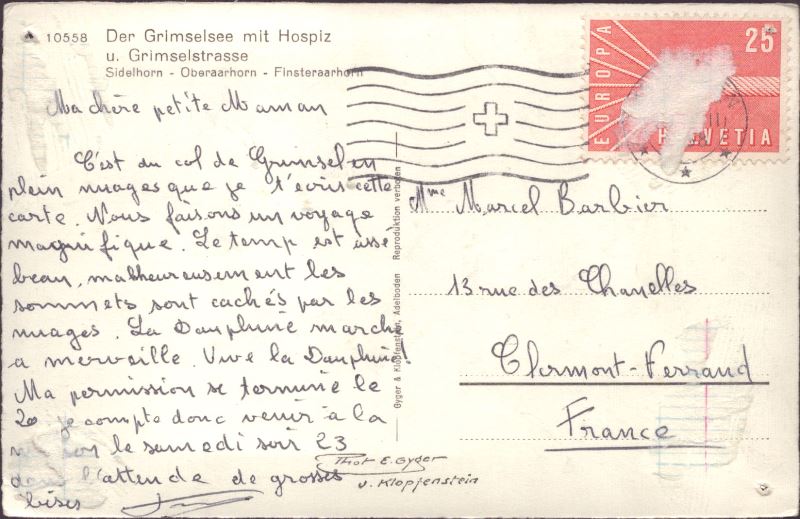 10558 Der Grimselsee mit Hospiz
u. Grimselstrasse
Sidelhorn - Oberaarhorn - Finsteraarhorn
Ma chère petite Maman
C'est du col de Grimsel en
plein nuages que je t'écris cette
carte. Nous faisons un voyage
magnifique. Le temp est assé
beau, malheureusement les
sommets sont cachés par les
nuages. La Dauphine marche
a merveille. Vive la Dauphine!
Ma permission se termine le
20 je compte donc venir à la
le samedi soir 23
dans l'attende de grosses
bises
Gyger & Klopfenstein, Adelboden Reproduktion verboten
EUROPA
25
HELVETIA
Mme Marcel Barbier
13 rue des Chanelles
Clermont-Ferrand
France
Phot E. Gyger
u. Klopfenstein